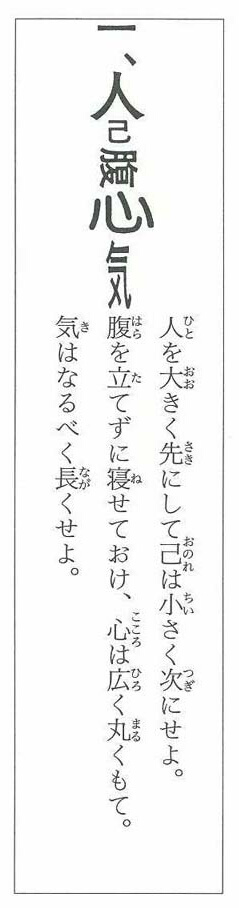 一、人己腹心気
人を大きく先にして己は小さく次にせよ。
腹を立てずに寝せておけ、心は広く丸くもて。
気はなるべく長くせよ。